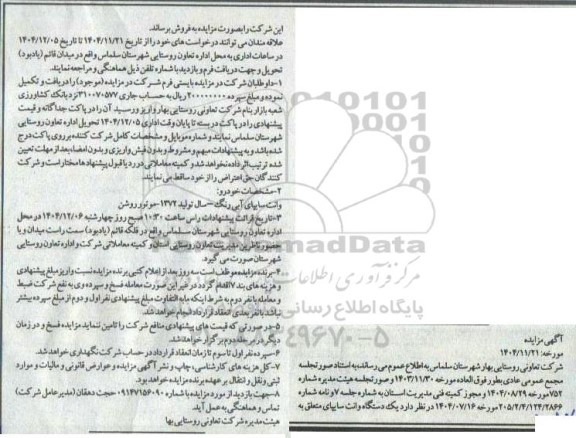 آگهی مزایده
مورخه: ۱۴۰۴/۱۱/۲۱
شرکت تعاونی روستایی بهار شهرستان سلماس به اطلاع عموم می رساند به استناد صورتجلسه
مجمع عمومی عادی بطور فوق العاده مورخه ۱۴۰۳/۱۱/۳۰ و صورتجلسه هیئت مدیره شماره
۷۵۲ مورخه ۱۴۰۳/۰۸/۲۹ و مجوز کمیته فنی مدیریت استان به شماره جلسه ۷ و نامه شماره
۲۰۵/۲/۴/۱۲۴/۲۸۶۶ مورخه ۱۴۰۴/۰۷/۱۶ در نظر دارد یک دستگاه وانت سایپای متعلق به
این شرکت را بصورت مزایده به فروش برساند.
علاقه مندان می توانند درخواست های خود را از تاریخ ۱۴۰۴/۱۱/۲۱ تا تاریخ ۱۴۰۴/۱۲/۰۵
در ساعات اداری به محل اداره تعاون روستایی شهرستان سلماس واقع در میدان قائم (یادبود)
تحویل و جهت دریافت فرم و بازدید با شماره تلفن ذیل هماهنگی و مراجعه نمایند.
۱-داوطلبان شرکت در مزایده بایستی فرم شرکت در مزایده (موجود) را دریافت و تکمیل
نموده و مبلغ سپرده ۲۰۰۰۰۰۰۰۰ ریال به حساب جاری ۳۱۰۰۷۰۵۷۷ نزد بانک کشاورزی
شعبه بازار بنام شرکت تعاونی روستایی بهار واریز و رسید آن را در پاکت جداگانه و قیمت
پیشنهادی را در پاکت دربسته تا پایان وقت اداری ۱۴۰۴/۱۲/۰۵ تحویل اداره تعاون روستایی
شهرستان سلماس نمایند و شماره موبایل و مشخصات کامل شرکت کننده بر روی پاکت درج
شده باشد و به پیشنهادات مبهم و مشروط و بدون فیش واریزی و بدون امضاء بعد از مهلت تعیین
شده ترتیب اثر داده نخواهد شد و کمیته معاملاتی در رد یا قبول پیشنهادها مختار است و شرکت
کنندگان حق اعتراض را از خود ساقط می نمایند.
۲-مشخصات خودرو:
وانت سایپای آبی رنگ-سال تولید ۱۳۷۲-موتور روشن
۳-تاریخ قرائت پیشنهادات راس ساعت ۱۰:۳۰ صبح روز چهارشنبه ۱۴۰۴/۱۲/۰۶ در محل
اداره تعاون روستایی شهرستان سلماس واقع در فلکه قائم (یادبود) سمت راست میدان و با
حضور ناظرین مدیریت تعاون روستایی استان و کمیته معاملاتی شرکت و اداره تعاون روستایی
شهرستان صورت می گیرد.
۴-برنده مزایده موظف است سه روز بعد از اعلام کتبی برنده مزایده نسبت واریز مبلغ پیشنهادی
و هزینه های بند ۷ اقدام گردد در غیر این صورت معامله فسخ و سپرده وی به نفع شرکت ضبط
و معامله با نفر دوم به شرط اینکه مابه التفاوت مبلغ پیشنهادی نفر اول و دوم از مبلغ سپرده بیشتر
نباشد با نفر بعدی انعقاد قرارداد انجام خواهد شد.
۵-در صورتی که قیمت های پیشنهادی منافع شرکت را تامین ننماید مزایده فسخ و در زمان
دیگر در مرحله دوم برگزار خواهد شد.
۶-سپرده نفر اول تا سوم تا زمان انعقاد قرارداد در حساب شرکت نگهداری خواهد شد.
۷-کل هزینه های کارشناسی، چاپ و نشر آگهی مزایده و عوارض قانونی و مالیات و موارد
ثبتی و نقل و انتقال بر عهده برنده مزایده خواهد بود.
۸-جهت بازدید از مورد مزایده به شماره ۰۹۱۴۷۱۵۶۰۹۰ حجت دهقان (مدیرعامل شرکت)
تماس و هماهنگی به عمل آید.
هیئت مدیره شرکت تعاونی روستایی بها
NamadData
مرکز فرآوری اطلاعات
پایگاه اطلاع رسانی
۳۴۹۶۷۰-۵